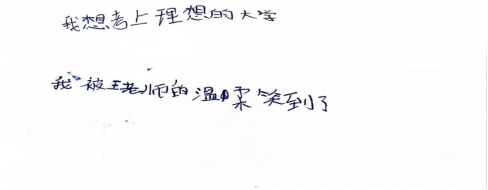 我想考上理想的大学
我被王老师的温柔笑到了